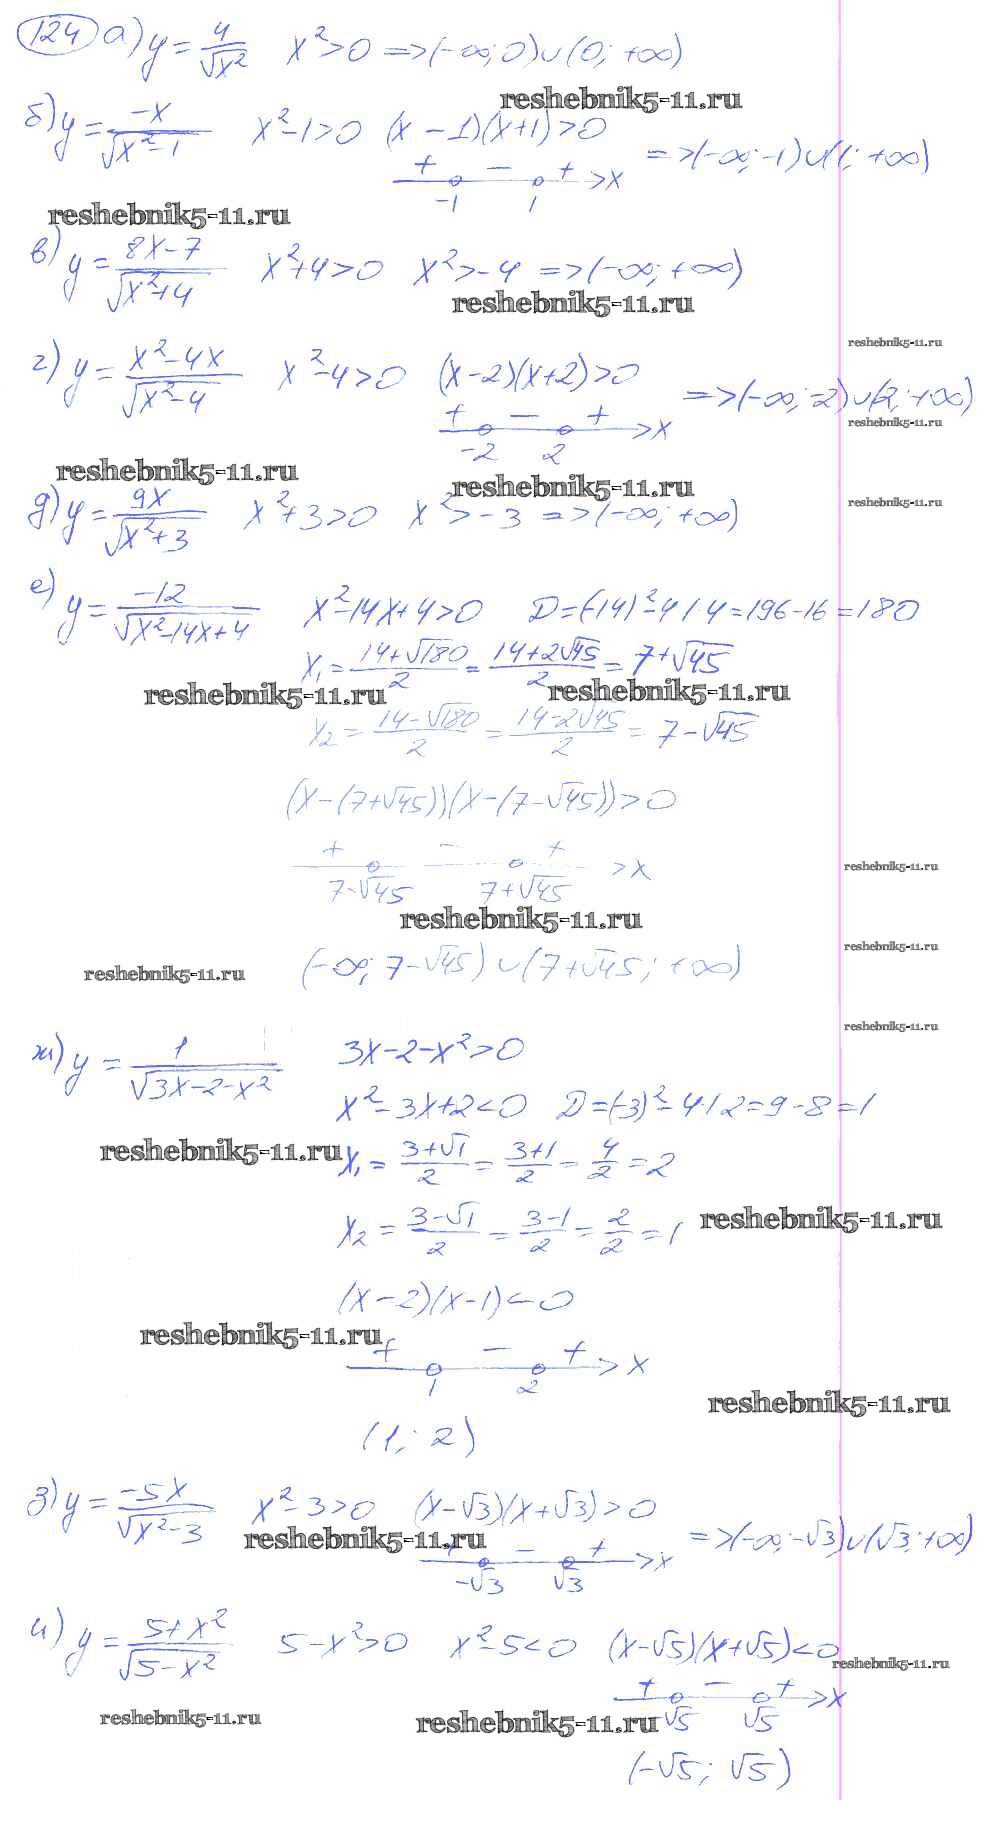 124 а) y = 4/√x² x² > 0 => (-∞; 0) ∪ (0; +∞)
reshebnik5-11.ru
б) y = -x/√x²-1 x²-1 > 0 (x-1)(x+1) > 0 => (-∞; -1) ∪ (1; +∞)
+ - + > x
-1 1
reshebnik5-11.ru
в) y = 8x-7/√x²+4 x²+4 > 0 x² > -4 => (-∞; +∞)
reshebnik5-11.ru
reshebnik5-11.ru
г) y = x²-4x/√x²-4 x²-4 > 0 (x-2)(x+2) > 0 => (-∞; -2) ∪ (2; +∞)
+ - + > x
reshebnik5-11.ru
-2 2
reshebnik5-11.ru
reshebnik5-11.ru
reshebnik5-11.ru
д) y = 9x/√x²+3 x²+3 > 0 x² > -3 => (-∞; +∞)
е) y = -12/√x²-14x+4 x²-14x+4 > 0 D = (-14)²-4·1·4 = 196-16 = 180
x₁ = 14+√180/2 = 14+2√45/2 = 7+√45
reshebnik5-11.ru reshebnik5-11.ru
x₂ = 14-√180/2 = 14-2√45/2 = 7-√45
(x-(7+√45))(x-(7-√45)) > 0
+ - + > x
reshebnik5-11.ru
7-√45 7+√45
reshebnik5-11.ru
reshebnik5-11.ru
(-∞; 7-√45) ∪ (7+√45; +∞)
reshebnik5-11.ru
reshebnik5-11.ru
ж) y = 1/√3x-2-x² 3x-2-x² > 0
x²-3x+2 < 0 D = (-3)²-4·1·2 = 9-8 = 1
reshebnik5-11.ru
x₁ = 3+√1/2 = 3+1/2 = 4/2 = 2
x₂ = 3-√1/2 = 3-1/2 = 2/2 = 1
reshebnik5-11.ru
(x-2)(x-1) < 0
reshebnik5-11.ru
+ - + > x
1 2
reshebnik5-11.ru
(1; 2)
з) y = -5x/√x²-3 x²-3 > 0 (x-√3)(x+√3) > 0 => (-∞; -√3) ∪ (√3; +∞)
reshebnik5-11.ru
+ - + > x
-√3 √3
и) y = 5+x²/√5-x² 5-x² > 0 x²-5 < 0 (x-√5)(x+√5) < 0
reshebnik5-11.ru
+ - + > x
√5 √5
reshebnik5-11.ru reshebnik5-11.ru
(-√5; √5)